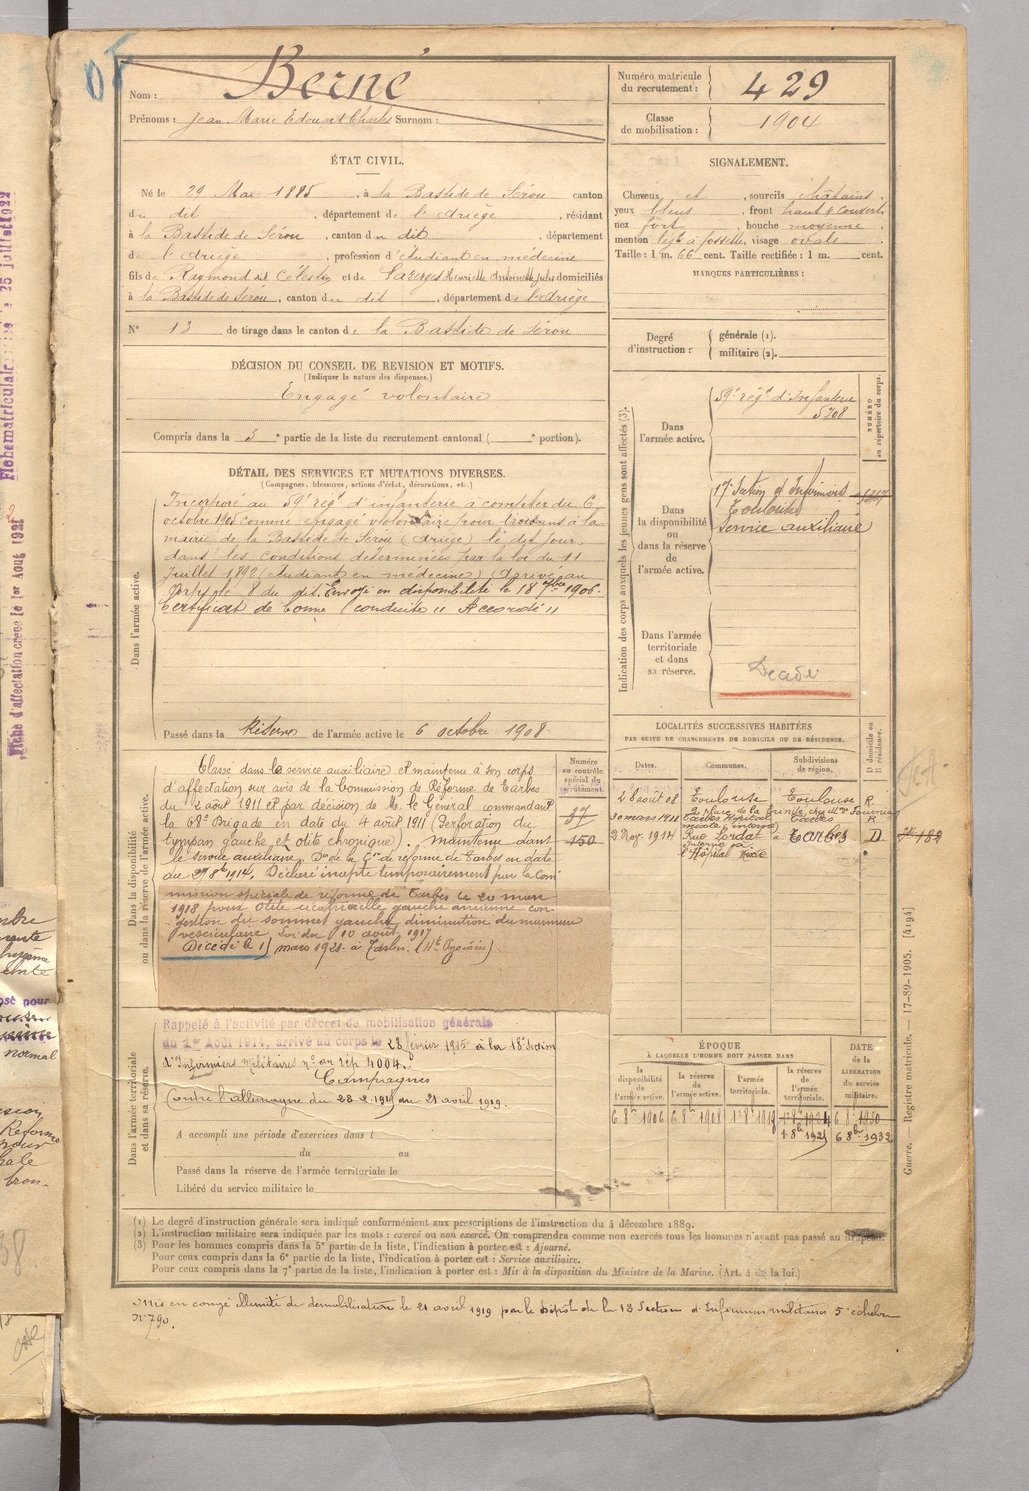 Nom : Berné
Prénoms : Jean Marie Edouard Charles Surnom :
Numéro matricule du recrutement : 429
Classe de mobilisation : 1904
ÉTAT CIVIL.
Né le 29 Mai 1885, à la Bastide de Sérou canton
du dit, département de l'Ariège, résidant
à la Bastide de Sérou, canton du dit, département
de l'Ariège, profession d'étudiant en médecine
fils de Raymond dit Célestin et de Lazerges Henriette Antoinette Julie domiciliés
à la Bastide de Sérou, canton du dit, département de l'Ariège
N° 13 de tirage dans le canton de la Bastide de Sérou
SIGNALEMENT.
Cheveux et, sourcils châtains,
yeux bleus, front haut & couvert,
nez fort, bouche moyenne,
menton à fossette, visage ovale
Taille : 1 m. 66 cent. Taille rectifiée : 1 m. cent.
MARQUES PARTICULIÈRES :
Degré d'instruction : générale (1).
militaire (2).
DÉCISION DU CONSEIL DE REVISION ET MOTIFS.
(Indiquer la nature des dispenses.)
Engagé volontaire
Compris dans la 3e partie de la liste du recrutement cantonal ( e portion).
DÉTAIL DES SERVICES ET MUTATIONS DIVERSES.
(Campagnes, blessures, actions d'éclat, décorations, etc.)
Dans l'armée active.
Incorporé au 59e régt d'infanterie à compter du 6
octobre 1905 comme engagé volontaire pour trois ans à la
mairie de la Bastide de Sérou (Ariège) le dit jour,
dans les conditions déterminées par la loi du 11
Juillet 1892 (étudiant en médecine) Arrivé au
corps le 8 du dit. Envoyé en disponibilité le 18 7bre 1906.
Certificat de bonne conduite " Accordé "
Passé dans la Réserve de l'armée active le 6 octobre 1908.
Indication des corps auxquels les jeunes gens sont affectés (3).
NUMÉRO au répertoire du corps.
Dans l'armée active.
59e régt d'Infanterie
5708
Dans la disponibilité ou dans la réserve de l'armée active.
17e Section d'Infirmiers
Toulouse
Service auxiliaire
Dans l'armée territoriale et dans sa réserve.
Décédé
LOCALITÉS SUCCESSIVES HABITÉES
PAR SUITE DE CHANGEMENTS DE DOMICILE OU DE RÉSIDENCE.
Dates. Communes. Subdivisions de région. D domicile ou R résidence.
28 août 08 Toulouse Toulouse R.
2 place de la Trinité chez Mme
30 mars 1911 Tarbes Hôpital Tarbes R
2 Nov. 1914 Rue Lordat à Tarbes D
Interne à
l'Hôpital Mixte
Dans la disponibilité ou dans la réserve de l'armée active.
Numéro au contrôle spécial du recrutement.
37
150
Classé dans le service auxiliaire et maintenu à son corps
d'affectation sur avis de la Commission de Réforme de Tarbes
du 2 août 1911 et par décision de M. le Général commandant
la 68e Brigade en date du 4 août 1911 (Perforation du
tympan gauche et otite chronique). Maintenu dans
le service auxiliaire. Don de la Con de réforme de Tarbes en date
du 29 8bre 1914. Déclaré inapte temporairement par la Com
mission spéciale de réforme de Tarbes le 20 mars
1918 pour otite cicatricielle gauche ancienne con-
gestion du sommet gauche diminution du murmure
vésiculaire. Loi du 10 août 1917
Décédé le 17 mars 1921 à Tarbes (Hte Pyrénées)
Dans l'armée territoriale et dans sa réserve.
Rappelé à l'activité par décret de mobilisation générale
du 1er Août 1914, arrivé au corps le 28 février 1915 à la 18e Section
d'Infirmiers militaires no au rép. 4004.
Campagnes
Contre l'Allemagne du 28-2-1915 au 21 avril 1919.
A accompli une période d'exercices dans l
du au
Passé dans la réserve de l'armée territoriale le
Libéré du service militaire le
ÉPOQUE
À LAQUELLE L'HOMME DOIT PASSER DANS
la disponibilité de l'armée active.
la réserve de l'armée active.
l'armée territoriale.
la réserve de l'armée territoriale.
DATE de la LIBÉRATION du service militaire.
6 8bre 1906 6 8bre 1908 1r 8bre 1918 1r 8bre 1924 6 8bre 1930
1 8bre 1925 6 8bre 1932
(1) Le degré d'instruction générale sera indiqué conformément aux prescriptions de l'instruction du 4 décembre 1889.
(2) L'instruction militaire sera indiquée par les mots : exercé ou non exercé. On comprendra comme non exercés tous les hommes n'ayant pas passé au drapeau.
(3) Pour les hommes compris dans la 5e partie de la liste, l'indication à porter est : Ajourné.
Pour ceux compris dans la 6e partie de la liste, l'indication à porter est : Service auxiliaire.
Pour ceux compris dans la 7e partie de la liste, l'indication à porter est : Mis à la disposition du Ministre de la Marine. (Art. 4 de la loi.)
Mis en congé illimité de démobilisation le 21 avril 1919 par le Dépôt de la 18 Section d'Infirmiers militaires 5e échelon
No 790.
Guerre. — Registre matricule. — 17-89-1905. [4194]